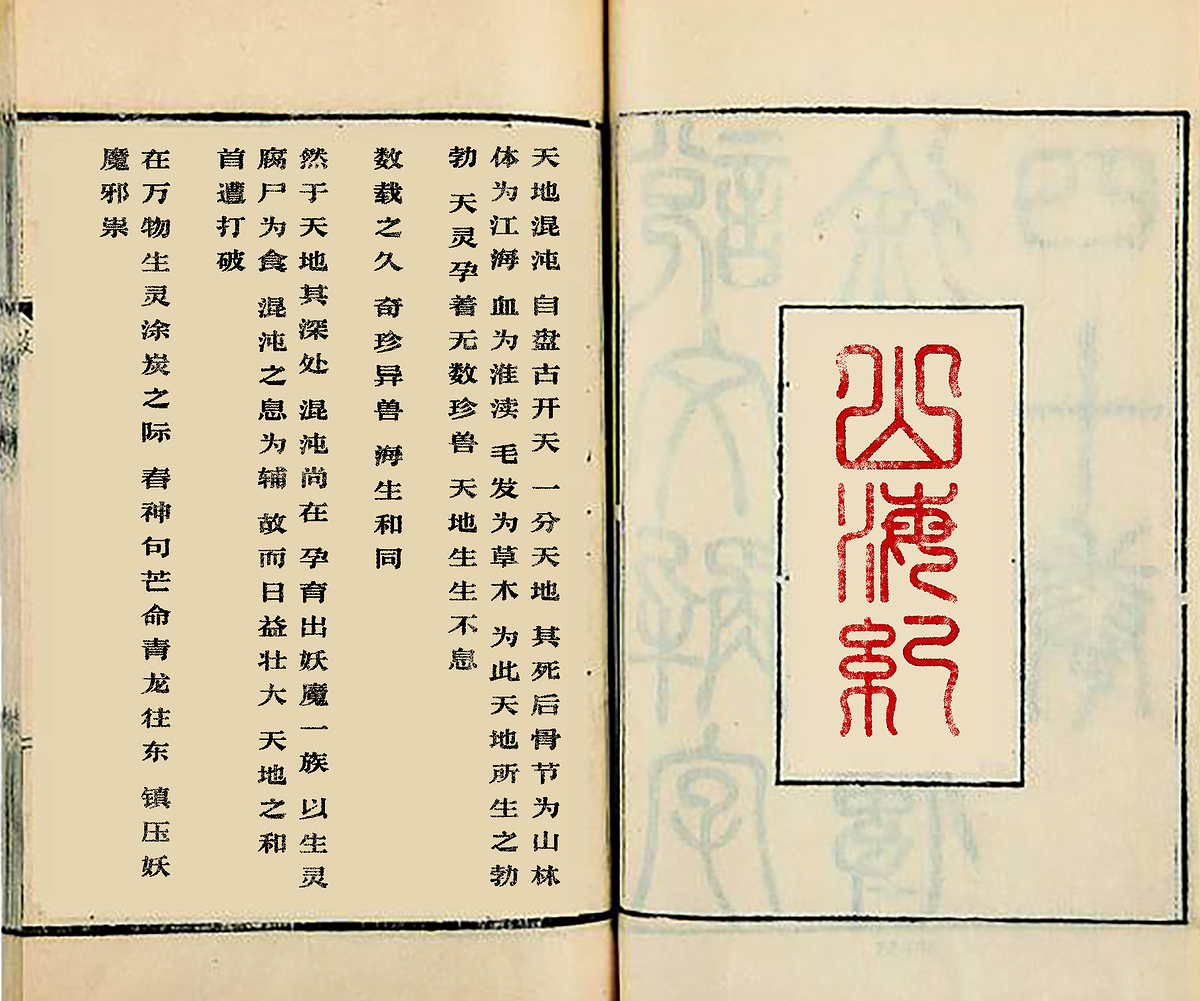 山海紀
天地混沌 自盘古开天 一分天地 其死后骨节为山林
体为江海 血为淮渎 毛发为草木 为此天地所生之勃
勃 天灵孕着无数珍兽 天地生生不息
数载之久 奇珍异兽 海生和同
然于天地其深处 混沌尚在 孕育出妖魔一族 以生灵
腐尸为食 混沌之息为辅 故而日益壮大 天地之和
首遭打破
在万物生灵涂炭之际 春神句芒命青龙往东 镇压妖
魔邪祟